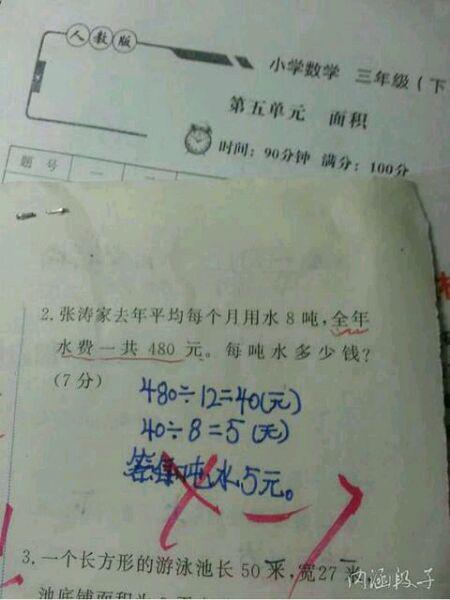 人教版
小学数学 三年级(下
第五单元 面积
时间：90分钟 满分：100分
题号 一 二
2.张涛家去年平均每个月用水8吨,全年
水费一共480元。每吨水多少钱?
(7分)
480÷12=40(元)
40÷8=5(元)
答:每吨水5元。
-7
3.一个长方形的游泳池长50米,宽27米,
内涵段子